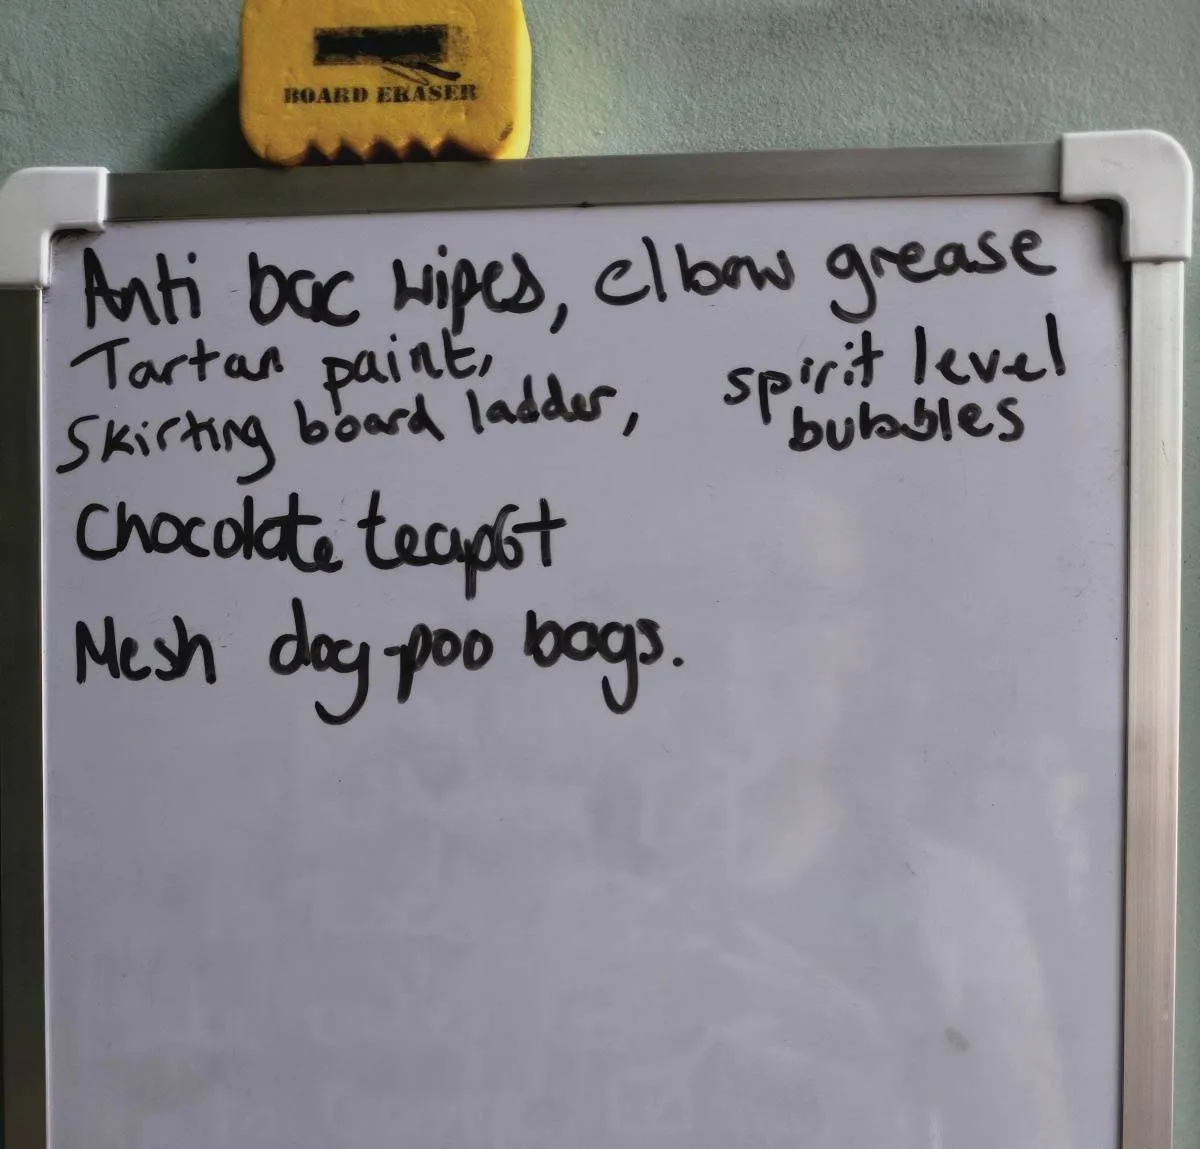 BOARD ERASER
Anti bac wipes, elbow grease
Tartan paint,
Skirting board ladder,
spirit level
bubbles
Chocolate teapot
Mesh dog-poo bags.